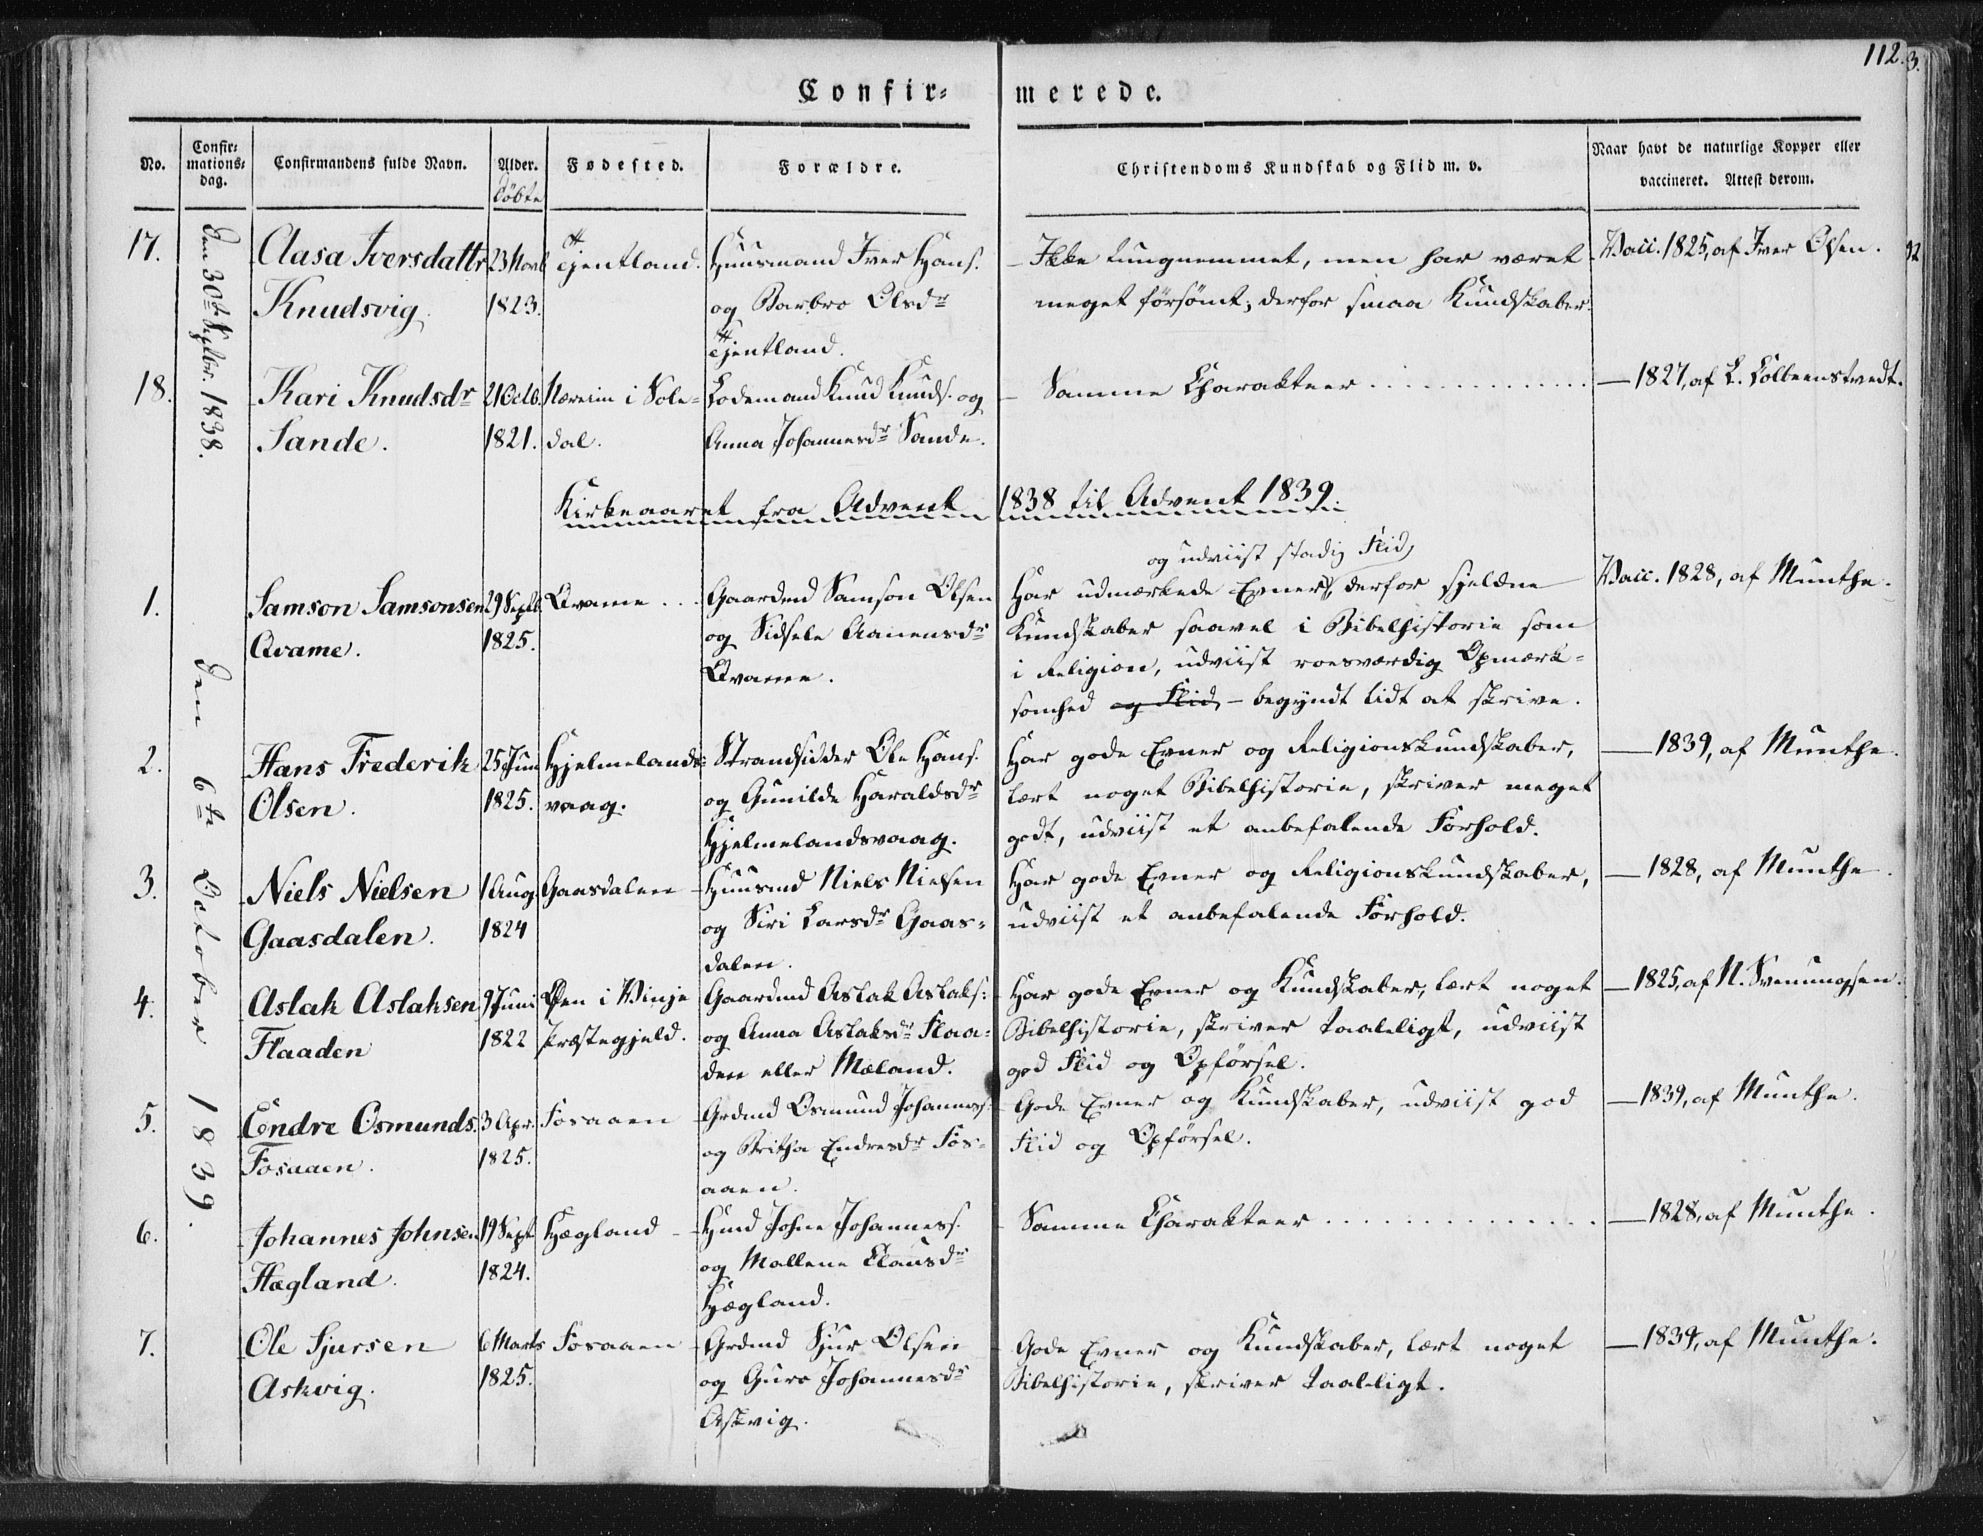 112.
3.
Confir- merede.
No. Confir-mations-dag. Confirmandens fulde Navn. Alder. Fødested. Forældre. Christendoms Kundskab og Flid m. v. Naar havt de naturlige Kopper eller vaccineret. Attest derom.
døbte
den 30te Septbr. 1838.
17. Clasa Iversdattr 23 Novb. Tjentland. Huusmand Iver Hans. Ikke tungnemmet, men har været Vacc. 1825, af Iver Olsen.
Knudsvig. 1823. og Barbro Olsdr meget forsømt; derfor smaa Kundskaber.
Tjentland.
18. Kari Knudsdr 21 Octb. Nereim i Sole- Lodsmand Knud Knuds. og Samme Charakteer . . . . . . — 1827, af L. Colbeenstvedt.
Sande. 1821. dal. Anna Johannesdr Sande.
Kirkeaaret fra Advent 1838 til Advent 1839.
den 6te October 1839.
og udviist stadig Flid,
1. Samson Samsonsen 29 Septb. Qvame . . Gaardmd Samson Olsen Har udmærkede Evner, derfor sjeldne Vacc. 1828, af Munthe.
Qvame. 1825. og Sidsele Aanensdr Kundskaber saavel i Bibelhistorie som
Qvame. i Religion, udviist roesværdig Opmærk-
somhed og Flid, – begyndt lidt at skrive.
2. Hans Frederik 25 Juni Hjelmelands- Strandsidder Ole Hans. Har gode Evner og Religionskundskaber, — 1839, af Munthe.
Olsen. 1825. vaag. og Gunilde Haraldsdr lært noget Bibelhistorie, skriver meget
Hjelmelandsvaag. godt, udviist et anbefalende Forhold.
3. Niels Nielsen 1 Aug. Gaasdalen Huusmd Niels Nielsen Har gode Evner og Religionskundskaber, — 1828, af Munthe.
Gaasdalen. 1824 og Siri Larsdr Gaas- udviist et anbefalende Forhold.
dalen.
4. Aslak Aslaksen 9 Juni Øen i Vinje Gaardmd Aslak Aslaks: Har gode Evner og Kundskaber, lært noget — 1825, af N. Svenungsen.
Flaaden 1822 Præstegjeld. og Anna Aslaksdr Flaa- Bibelhistorie, skriver taaleligt, udviist
den eller Mæland. god Flid og Opførsel.
5. Endre Osmunds. 3 Apr. Fosaaen Grdmd Osmund Johanness. Gode Evner og Kundskaber, udviist god — 1839, af Munthe.
Fosaaen. 1825. og Britha Endresdr Fos- Flid og Opførsel.
aaen.
6. Johannes Johnsen 19 Sept Hægland Hmd Johne Johanness. Samme Charakteer . . . . . . — 1828, af Munthe.
Hægland. 1824. og Mallene Clausdr
Hægland.
7. Ole Sjursen 6 Marts Fosaaen Grdmd Sjur Olsen Gode Evner og Kundskaber, lært noget — 1839, af Munthe.
Askvig. 1825. og Guro Johannesdr Bibelhistorie, skriver taaleligt.
Askvig.